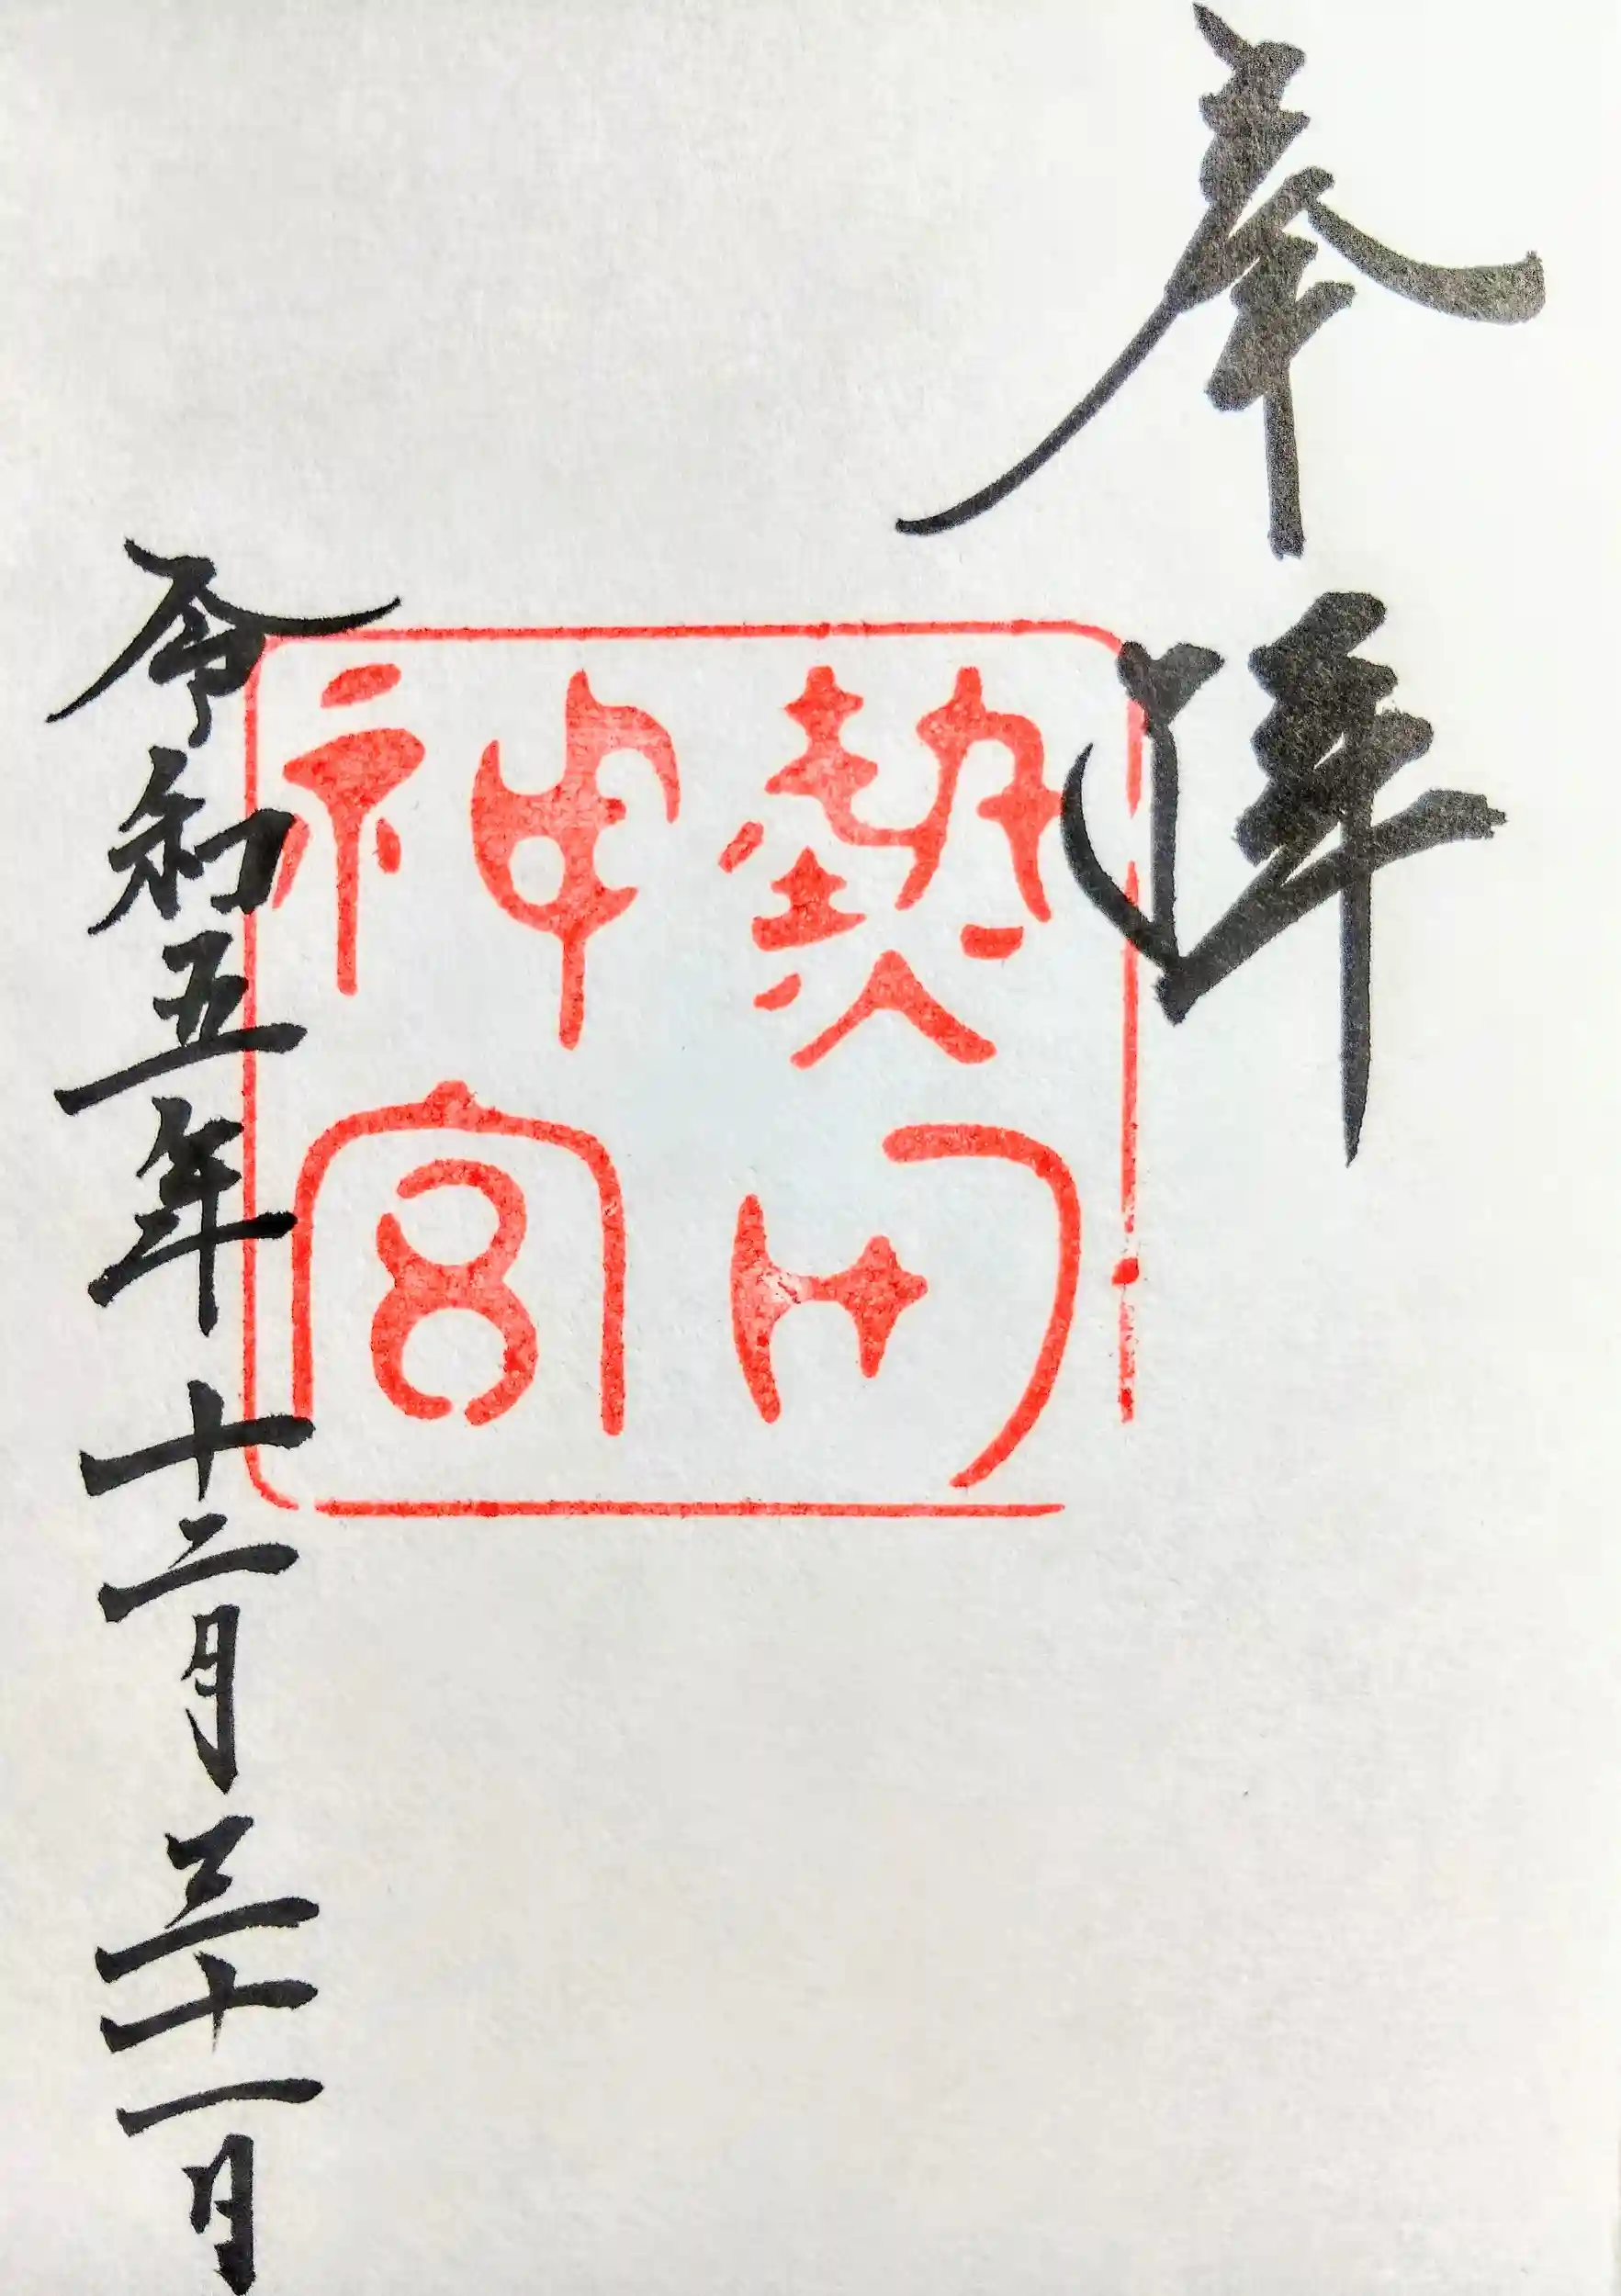 奉拜
熱田
神宮
令和五年十二月三十一日